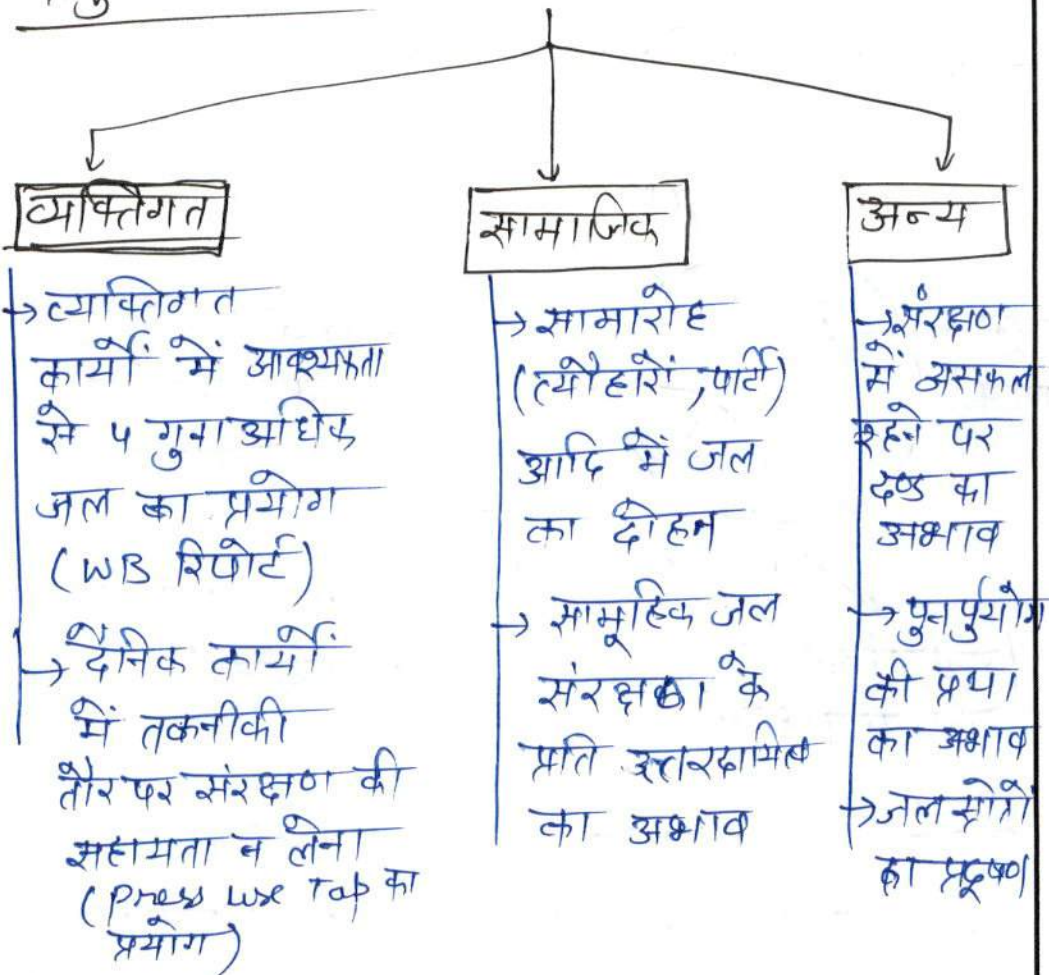 व्यक्तिगत
→ व्यक्तिगत
कार्यों में आवश्यकता
से ५ गुना अधिक
जल का प्रयोग
(WB रिपोर्ट)
→ दैनिक कार्यों
में तकनीकी
तौर पर संरक्षण की
सहायता न लेना
(Press use Tap का
प्रयोग)
सामाजिक
→ सामारोह
(त्यौहारों, पार्टी)
आदि में जल
का दोहन
→ सामूहिक जल
संरक्षण के
प्रति उत्तरदायित्व
का अभाव
अन्य
→ संरक्षण
में असफल
रहने पर
दण्ड का
अभाव
→ पुनर्प्रयोग
की प्रथा
का अभाव
→ जल स्रोतों
का प्रदूषण